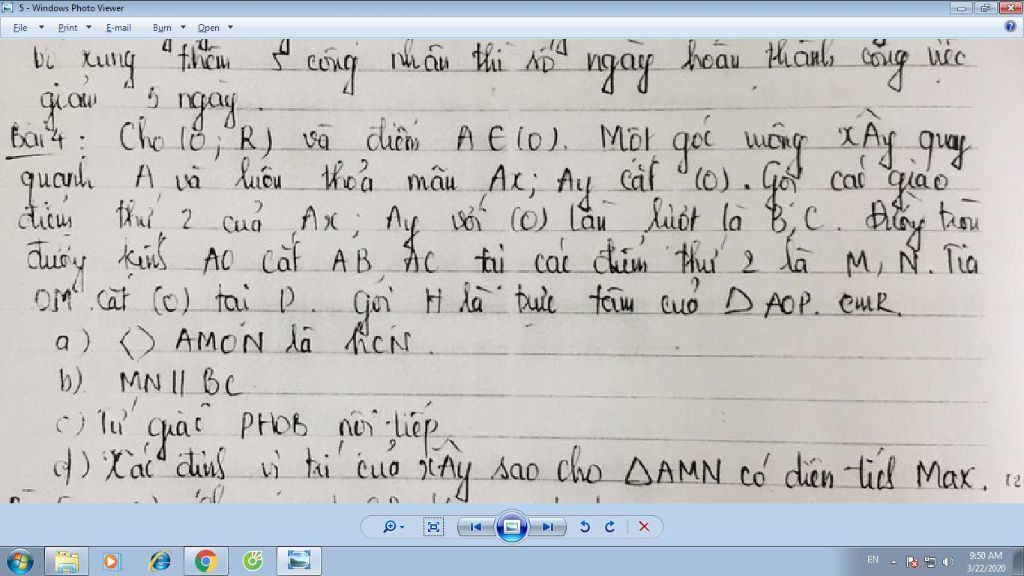 5 - Windows Photo Viewer
File Print E-mail Burn Open
bị xung thêm 5 công nhân thì số ngày hoàn thành công việc
giảm 5 ngày.
Bài 4: Cho (O; R) và điểm A ∈ (O). Một góc vuông xÂy quay
quanh A và luôn thoả mãn Ax; Ay cắt (O). Gọi các giao
điểm thứ 2 của Ax; Ay với (O) lần lượt là B, C. Đường tròn
đường kính AO cắt AB, AC tại các điểm thứ 2 là M, N. Tia
OM cắt (O) tại P. Gọi H là trực tâm của Δ AOP. CMR.
a) <> AMON là hCN.
b). MN // BC
c) Tứ giác PHOB nội tiếp
d) Xác định vị trí của xÂy sao cho ΔAMN có diện tích Max.
EN
9:50 AM
3/22/2020